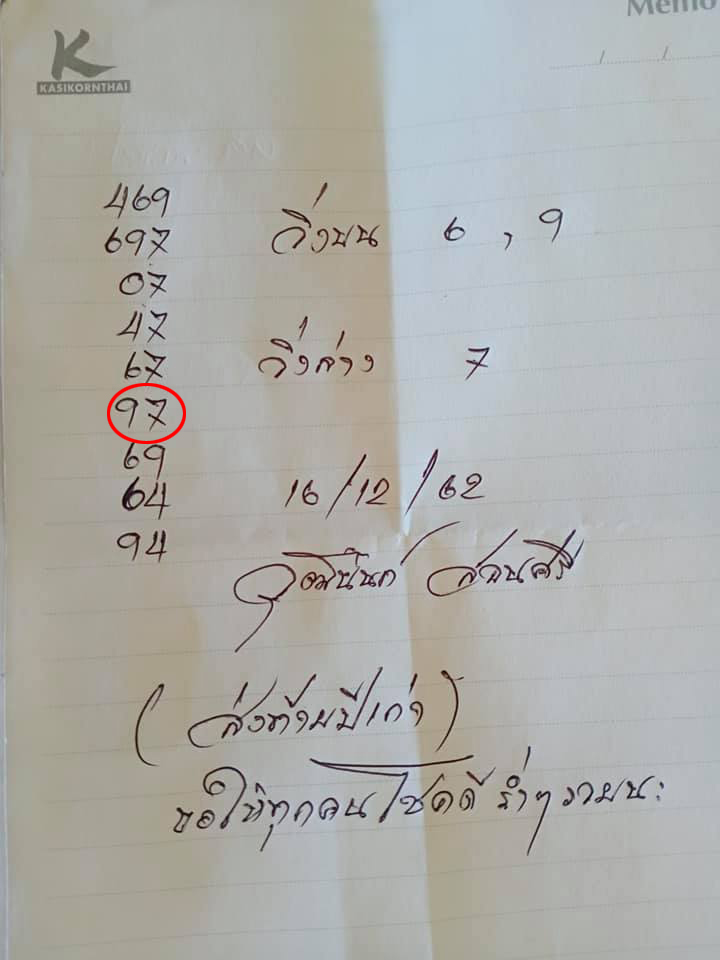 Memo
K
KASIKORNTHAI
/ /
469
697 วิ่งบน 6 , 9
07
47
67 วิ่งล่าง 7
97
69
64 16/12/62
94
วุฒินันท์ สอนศรี
(ส่งท้ายปีเก่า)
ขอให้ทุกคนโชคดี ร่ำๆ รวยนะ